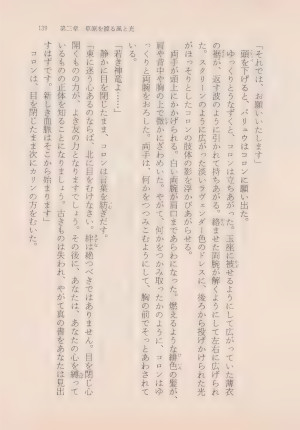 139　第二章　草原を渡る風と光
「それでは、お願いいたします」
頭を下げると、バリュウはコロンに願い出た。
ゆっくりとうなずくと、コロンは立ちあがった。玉座に被せるようにして広がっていた薄衣
の裾が、返す波のように引かれて持ちあがる。絡ませた両腕が解けるようにして左右に広げられ
た。スクリーンのように広がった淡いラヴェンダー色のドレスに、後ろから投げかけられた光
がほっそりとしたコロンの肢体の影を浮かびあがらせる。
両手が頭上にかかげられる。白い両腕が肩口まであらわになった。燃えるような緋色の髪が、
肩や背中や胸の上で微かにざわめいた。やがて、何かをつかみ取ったかのように、コロンはゆ
っくりと両腕をおろした。両手は、何かをつつみこむようにして、胸の前でそっとあわされて
いる。
「若き神竜よ……」
静かに目を閉じたまま、コロンは言葉を紡ぎだす。
「東に迷う心あるのならば、北に目をむけなさい。絆は絶つべきではありません。目を閉じ心
開くものの力が、よき友の力となりますでしょう。その後に、あなたは、あなたの心を縛って
いるものの正体を知ることになりましょう。古きものは失われ、やがて真の書をあなたは見出
すはずです。新しき血脈はそこから始まります」
コロンは、目を閉じたまま次にカリンの方をむいた。